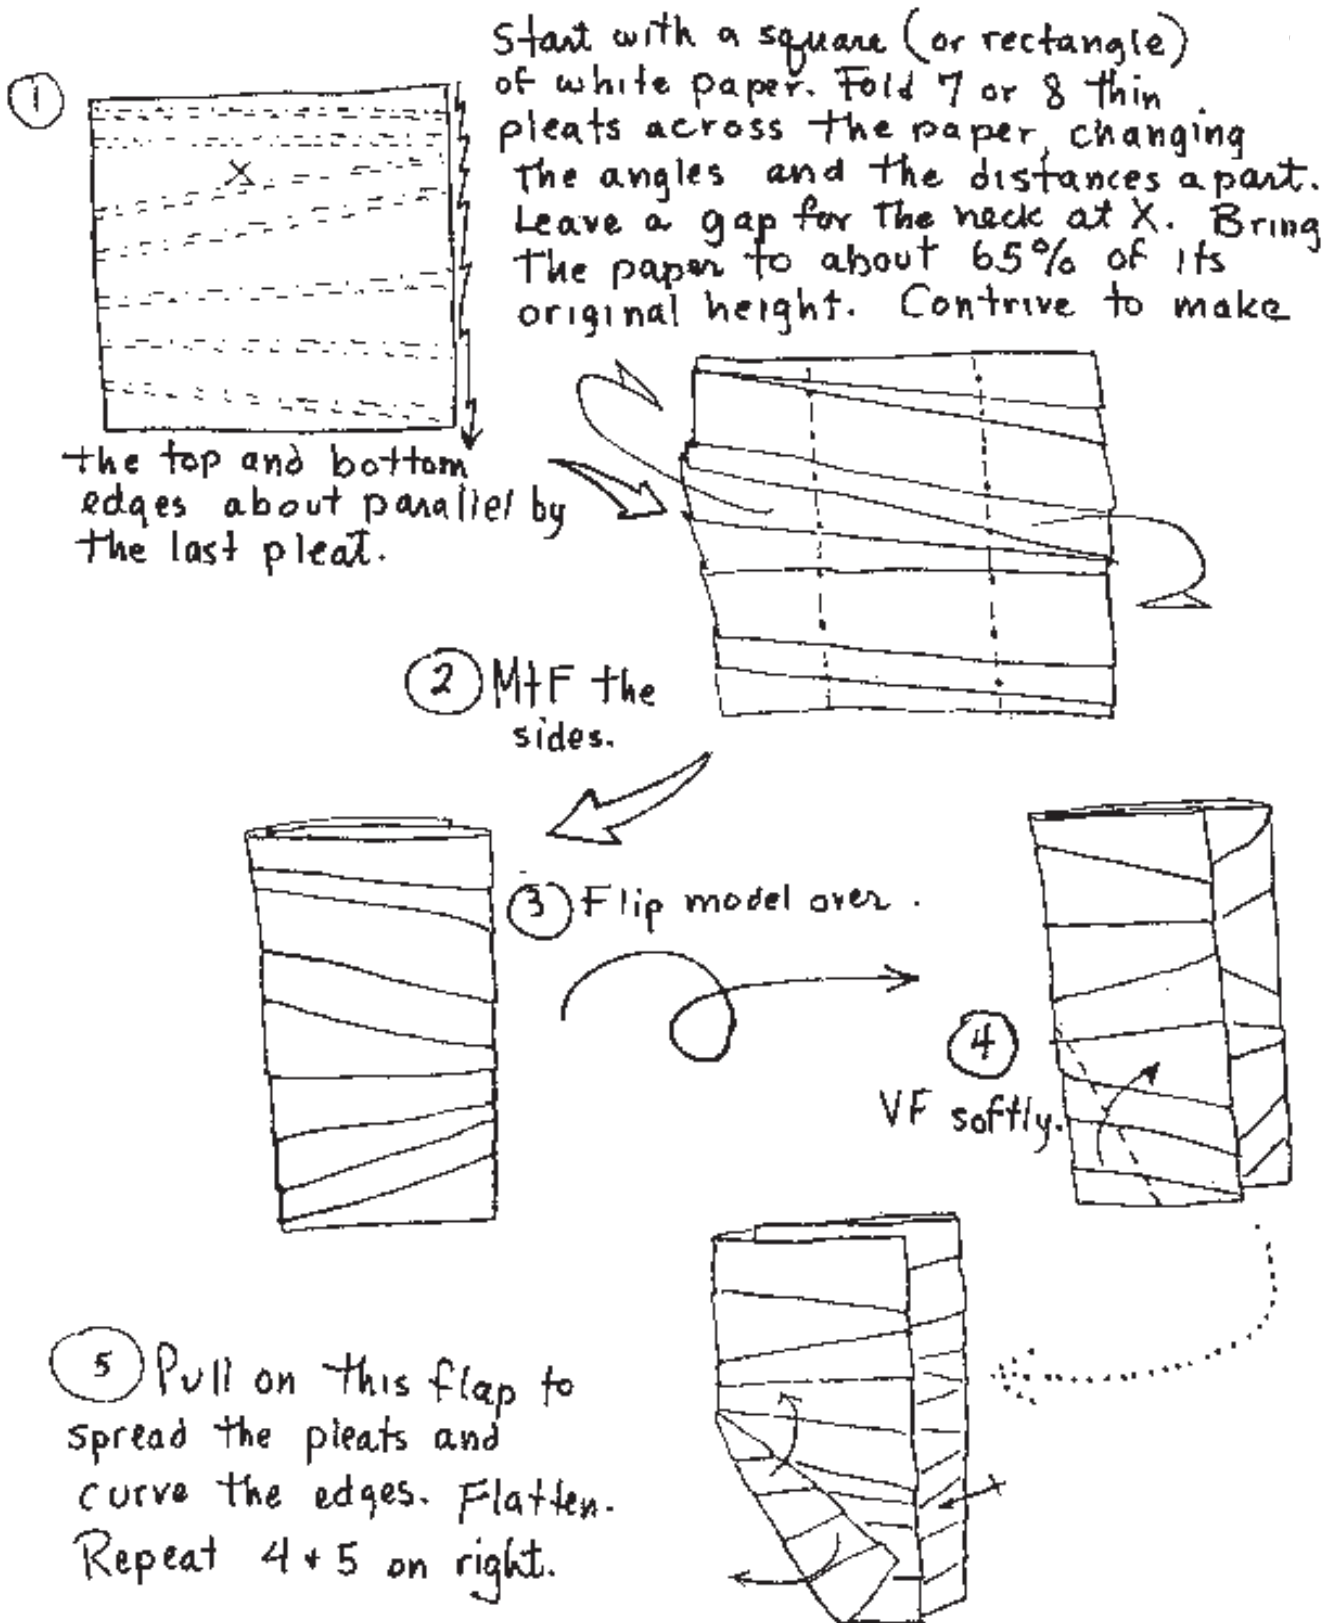 1
Start with a square (or rectangle)
of white paper. Fold 7 or 8 thin
pleats across the paper, changing
the angles and the distances apart.
Leave a gap for the neck at X. Bring
the paper to about 65% of its
original height. Contrive to make
X
the top and bottom
edges about parallel by
the last pleat.
2 MtF the
sides.
3 Flip model over.
4
VF softly.
5 Pull on this flap to
spread the pleats and
curve the edges. Flatten.
Repeat 4 + 5 on right.